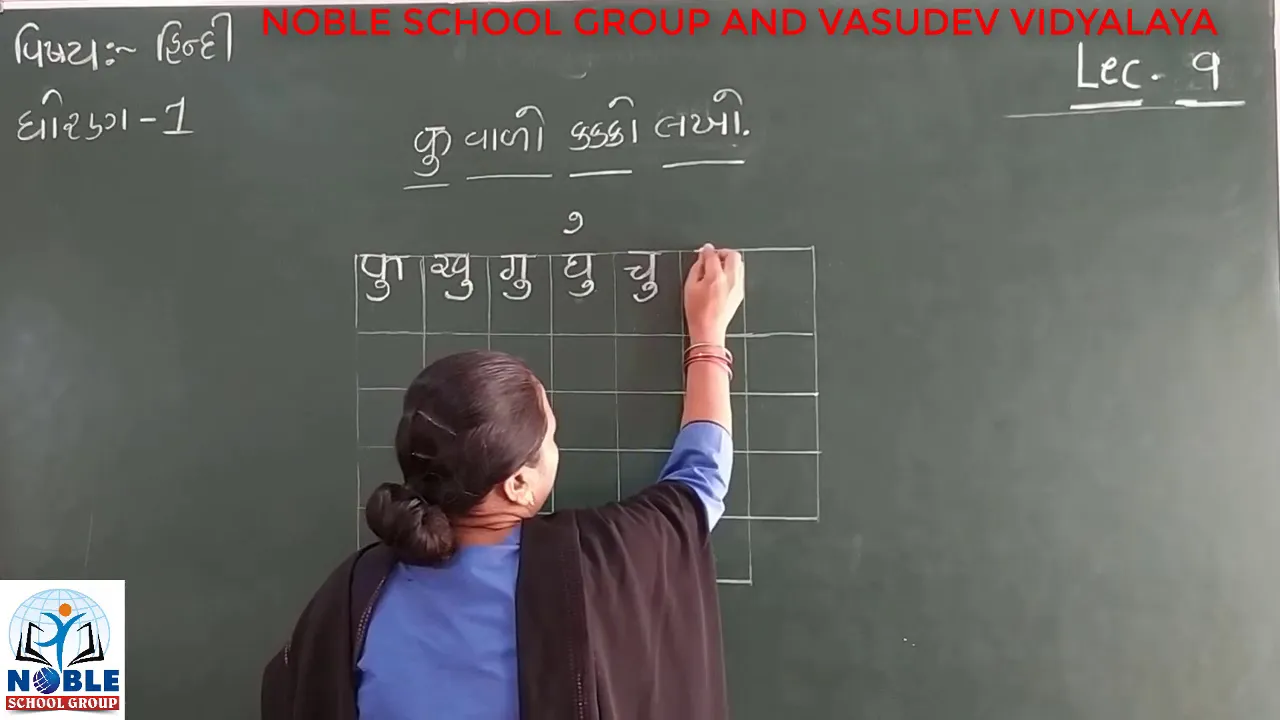 NOBLE SCHOOL GROUP AND VASUDEV VIDYALAYA
વિષય:- હિન્દી
Lec. 9
ધોરણ - 1
कु વાળો કક્કો લખો.
ु
कु खु गु घु चु
NOBLE
SCHOOL GROUP